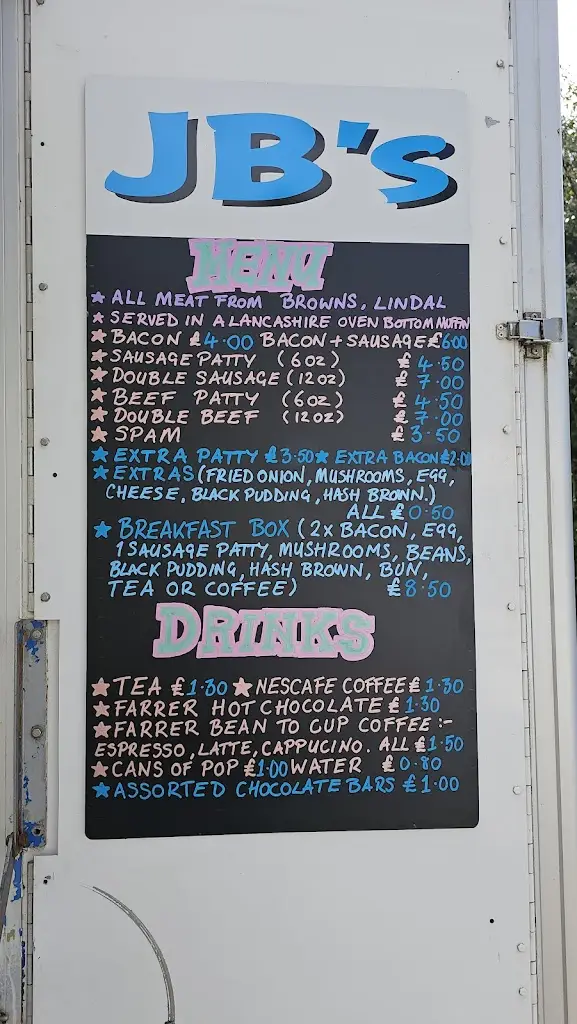 JB's
MENU
★ ALL MEAT FROM BROWNS, LINDAL
★ SERVED IN A LANCASHIRE OVEN BOTTOM MUFFIN
★ BACON £4.00 BACON + SAUSAGE £6.00
★ SAUSAGE PATTY (6oz) £4.50
★ DOUBLE SAUSAGE (12oz) £7.00
★ BEEF PATTY (6oz) £4.50
★ DOUBLE BEEF (12oz) £7.00
★ SPAM £3.50
★ EXTRA PATTY £3.50 ★ EXTRA BACON £2.00
★ EXTRAS (FRIED ONION, MUSHROOMS, EGG,
CHEESE, BLACK PUDDING, HASH BROWN.)
ALL £0.50
★ BREAKFAST BOX (2x BACON, EGG,
1 SAUSAGE PATTY, MUSHROOMS, BEANS,
BLACK PUDDING, HASH BROWN, BUN,
TEA OR COFFEE) £8.50
DRINKS
★ TEA £1.30 ★ NESCAFE COFFEE £1.30
★ FARRER HOT CHOCOLATE £1.30
★ FARRER BEAN TO CUP COFFEE :-
ESPRESSO, LATTE, CAPPUCINO. ALL £1.50
★ CANS OF POP £1.00 WATER £0.80
★ ASSORTED CHOCOLATE BARS £1.00